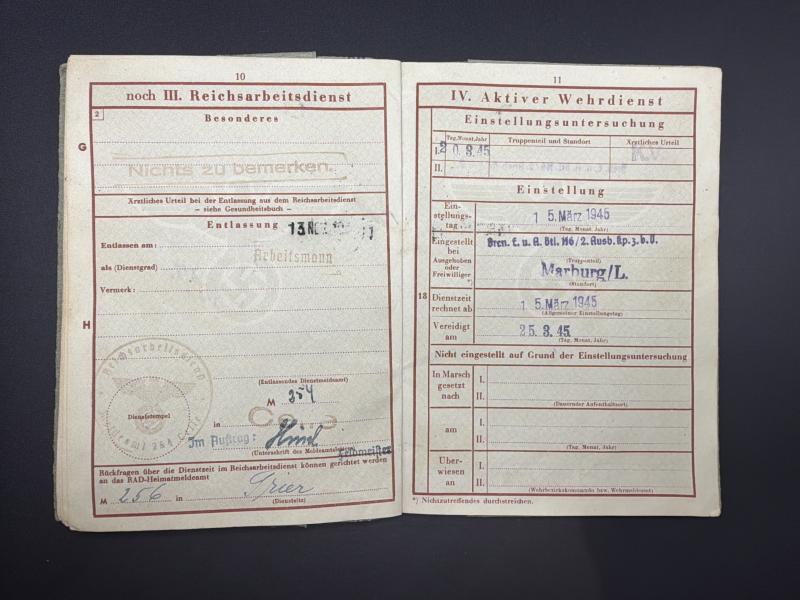 10
noch III. Reichsarbeitsdienst
2
Besonderes
G
Nichts zu bemerken.
Ärztliches Urteil bei der Entlassung aus dem Reichsarbeitsdienst
– siehe Gesundheitsbuch –
Entlassung
13
Entlassen am:
Arbeitsmann
als (Dienstgrad)
Vermerk:
H
Reichsarbeitsdienst
(Entlassendes Dienstmeldeamt)
M 254
Dienststempel
in Celle
Im Auftrag:
(Unterschrift des Meldeamtsleiters)
Feldmeister
Rückfragen über die Dienstzeit im Reichsarbeitsdienst können gerichtet werden
an das RAD-Heimatmeldeamt
M 256 in Trier
(Dienstsitz)
11
IV. Aktiver Wehrdienst
Einstellungsuntersuchung
Tag, Monat, Jahr Truppenteil und Standort Ärztliches Urteil
I. 20.3.45
II.
Einstellung
Ein-
stellungs-
tag
15. März 1945
(Tag, Monat, Jahr)
Eingestellt
bei
Ausgehoben
oder
Freiwilliger
116/2.
(Truppenteil)
Marburg/L.
(Standort)
18
Dienstzeit
rechnet ab
15. März 1945
(Allgemeiner Einstellungstag)
Vereidigt
am
25.3.45.
(Tag, Monat, Jahr)
Nicht eingestellt auf Grund der Einstellungsuntersuchung
In Marsch
gesetzt
nach
I.
II.
(Dauernder Aufenthaltsort)
am
I.
II.
(Tag, Monat, Jahr)
Über-
wiesen
an
I.
II.
(Wehrbezirkskommando bzw. Wehrmeldeamt)
*) Nichtzutreffendes durchstreichen.